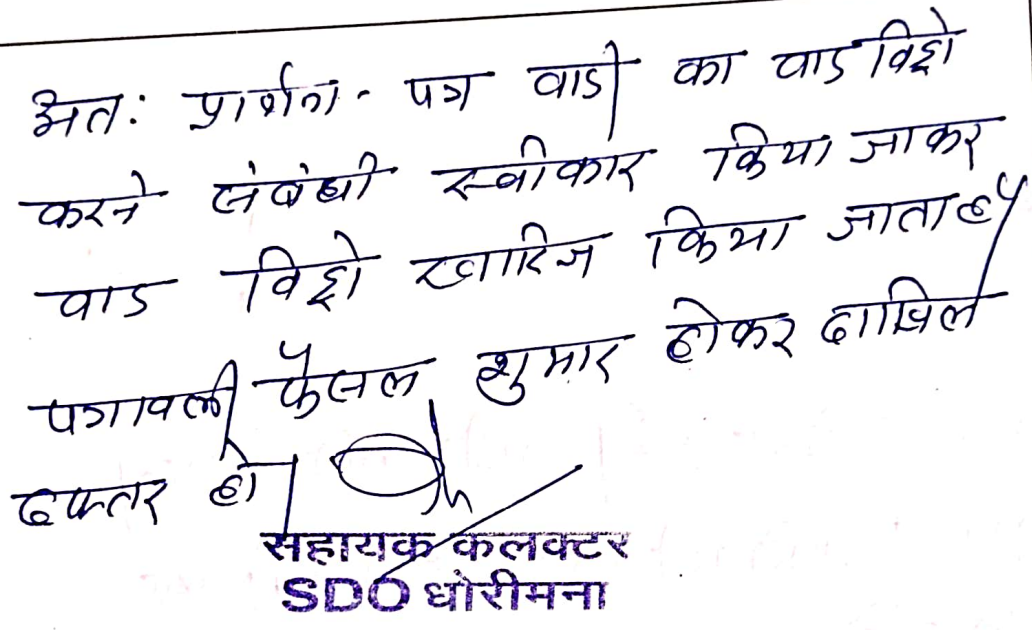 अतः प्रार्थना-पत्र वादी का वाद विड्रो
करने संबंधी स्वीकार किया जाकर
वाद विड्रो खारिज किया जाता है।
पत्रावली फैसल शुमार होकर दाखिल
दफ्तर हो।
सहायक कलक्टर
SDO धोरीमना